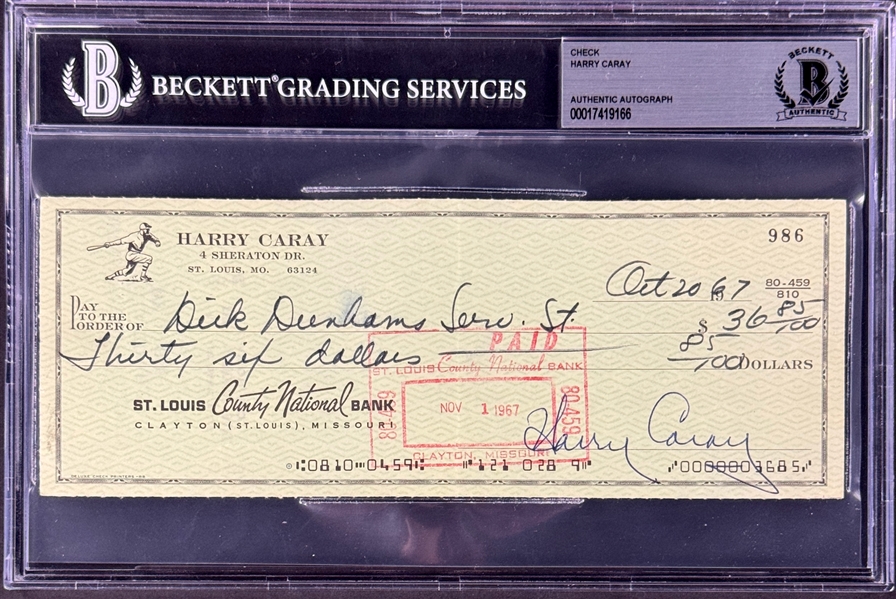 BECKETT® GRADING SERVICES
CHECK
HARRY CARAY
AUTHENTIC AUTOGRAPH
00017419166
BECKETT
B
AUTHENTIC
B
HARRY CARAY
4 SHERATON DR.
ST. LOUIS, MO. 63124
986
Oct 20 1967
80-459
810
PAY TO THE ORDER OF Dick Dunhams Serv. St. $ 36 85/100
Thirty six dollars 85/100 DOLLARS
PAID
ST. LOUIS County National BANK
80-459
NOV 1 1967
80-459
CLAYTON, MISSOURI
ST. LOUIS County National BANK
CLAYTON (ST. LOUIS), MISSOURI
Harry Caray
⑆0810⑉0459⑆ ⑈121 028 9⑈ ⑈0000003685⑈
DELUXE CHECK PRINTERS